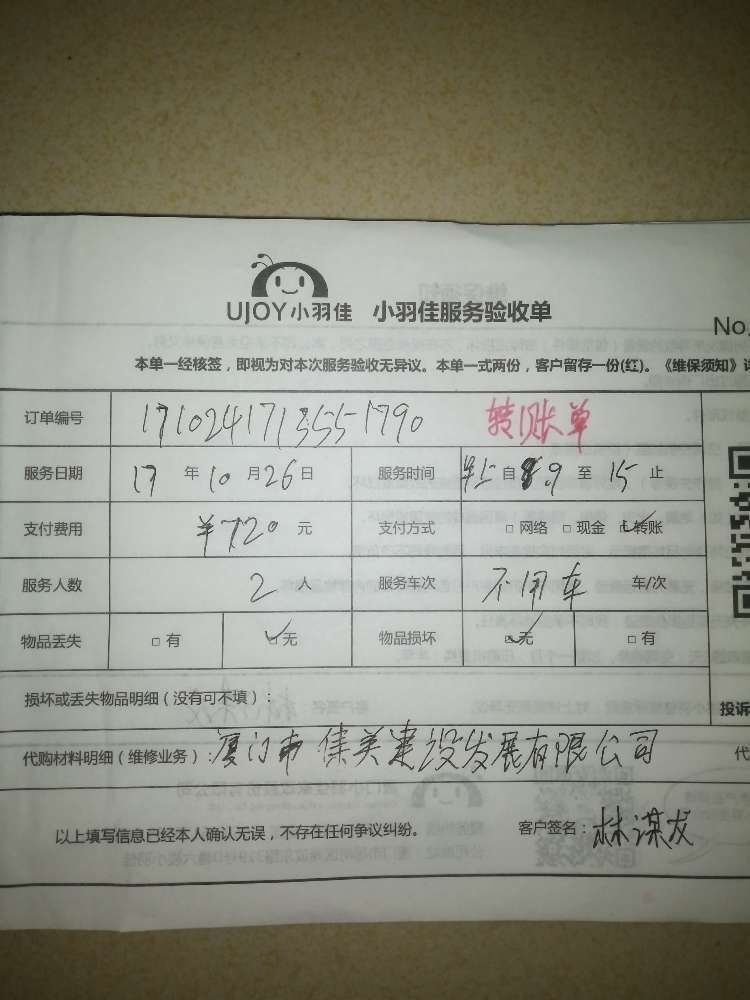 UJOY小羽佳 小羽佳服务验收单
No.
本单一经核签，即视为对本次服务验收无异议。本单一式两份，客户留存一份(红)。《维保须知》
订单编号 1710241713551790 转账单
服务日期 17 年 10 月 26 日 服务时间 自 9 至 15 止
支付费用 ¥720 元 支付方式 □ 网络 □ 现金 ☑ 转账
服务人数 2 人 服务车次 不用车 车/次
物品丢失 □ 有 ☑ 无 物品损坏 ☑ 无 □ 有
损坏或丢失物品明细（没有可不填）：
投诉
代购材料明细（维修业务）：厦门市集美建设发展有限公司
代
以上填写信息已经本人确认无误，不存在任何争议纠纷。 客户签名：林谋发